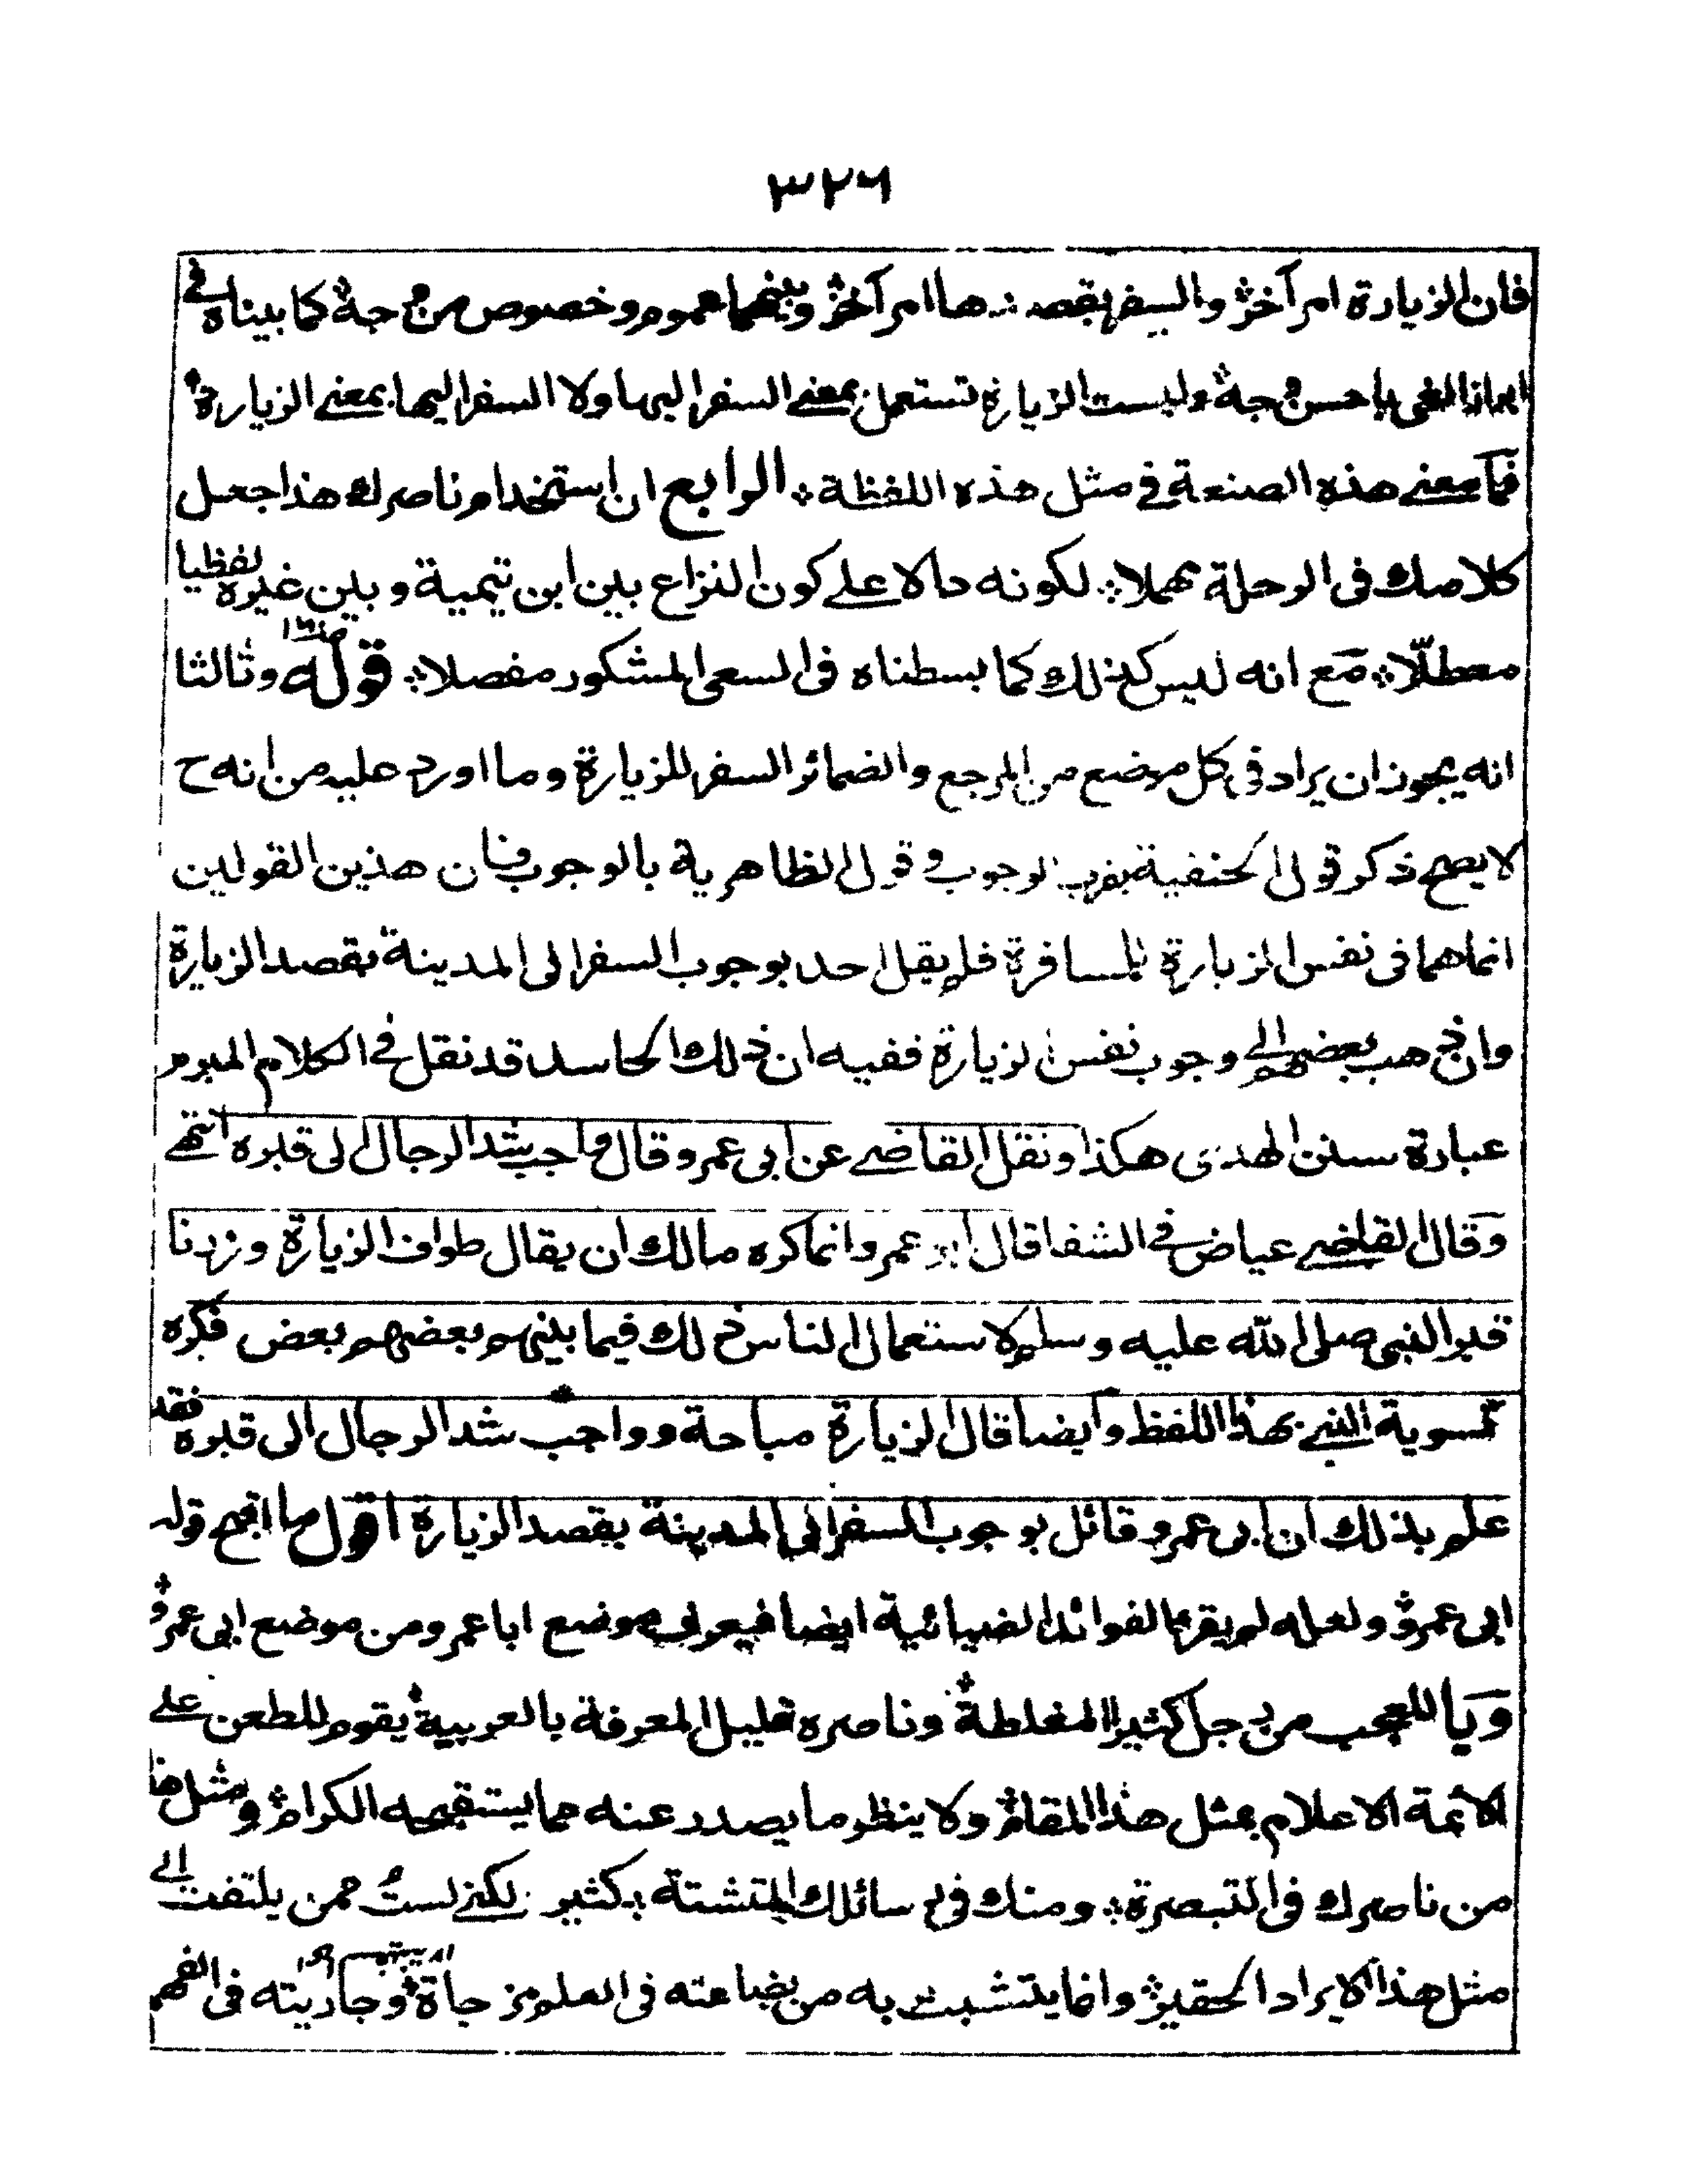 ٣٢٦
فان الزيارة امر آخر والسفر بقصدها امر آخر وبينهما عموم وخصوص من وجه كما بيناه في
ابراز الغي باحسن وجه وليست الزيارة تستعمل بمعنے السفر اليها ولا السفر اليها بمعنے الزيارة
فما معنے هذه الصنعة في مثل هذه اللفظة الرابع ان استخدام ناصرك هذا جعل
كلامك فى الرحلة مهملا لكونه دالا علے كون النزاع بين ابن تيمية وبين غيره لفظيا
معطلّا مع انه ليس كذلك كما بسطناه فى السعى المشكور مفصلا قوله وثالثا
انه يجوز ان يراد فى كل موضع من المرجع والضمائر السفر للزيارة وما اورد عليه من انه ح
لا يصح ذكر قول الحنفية بقرب الوجوب وقول الظاهرية بالوجوب فان هذين القولين
انما هما فى نفس الزيارة لا المسافرة فلم يقل احد بوجوب السفر الى المدينة بقصد الزيارة
وان ذهب بعضهم الى وجوب نفس الزيارة ففيه ان ذلك الحاسد قد نقل في الكلام المبرم
عبارة سنن الهدى هكذا ونقل القاضے عن ابى عمرو قال واجب شد الرحال الى قبره انتهے
وقال القاضے عياض في الشفا قال ابو عمرو انما كره مالك ان يقال طواف الزيارة وزرنا
قبر النبى صلى الله عليه وسلم لاستعمال الناس ذلك فيما بينهم بعضهم بعض فكره
تسوية النبي بهذا اللفظ وايضا قال الزيارة مباحة وواجب شد الرحال الى قبره فقد
علم بذلك ان ابى عمرو قائل بوجوب السفر الى المدينة بقصد الزيارة اقول ما اقبح قوله
ابى عمرو ولعله لم يقرء الفوائد الضيائية ايضا فيعرف موضع ابا عمرو من موضع ابى عمرو
ويا للعجب من رجل كثير المغلطة وناصره قليل المعرفة بالعربية يقوم للطعن على
الائمة الاعلام بمثل هذا المقام ولا ينظر ما يصدر عنه مما يستقبحه الكرام ومثل هذا
من ناصرك فى التبصرة ومنك فى رسائلك المتشتتة كثير لكنے لست ممن يلتفت الے
مثل هذا الايراد الحقير وانما يتشبث به من بضاعته فى العلم مزجاة وجاريته فى الفهم